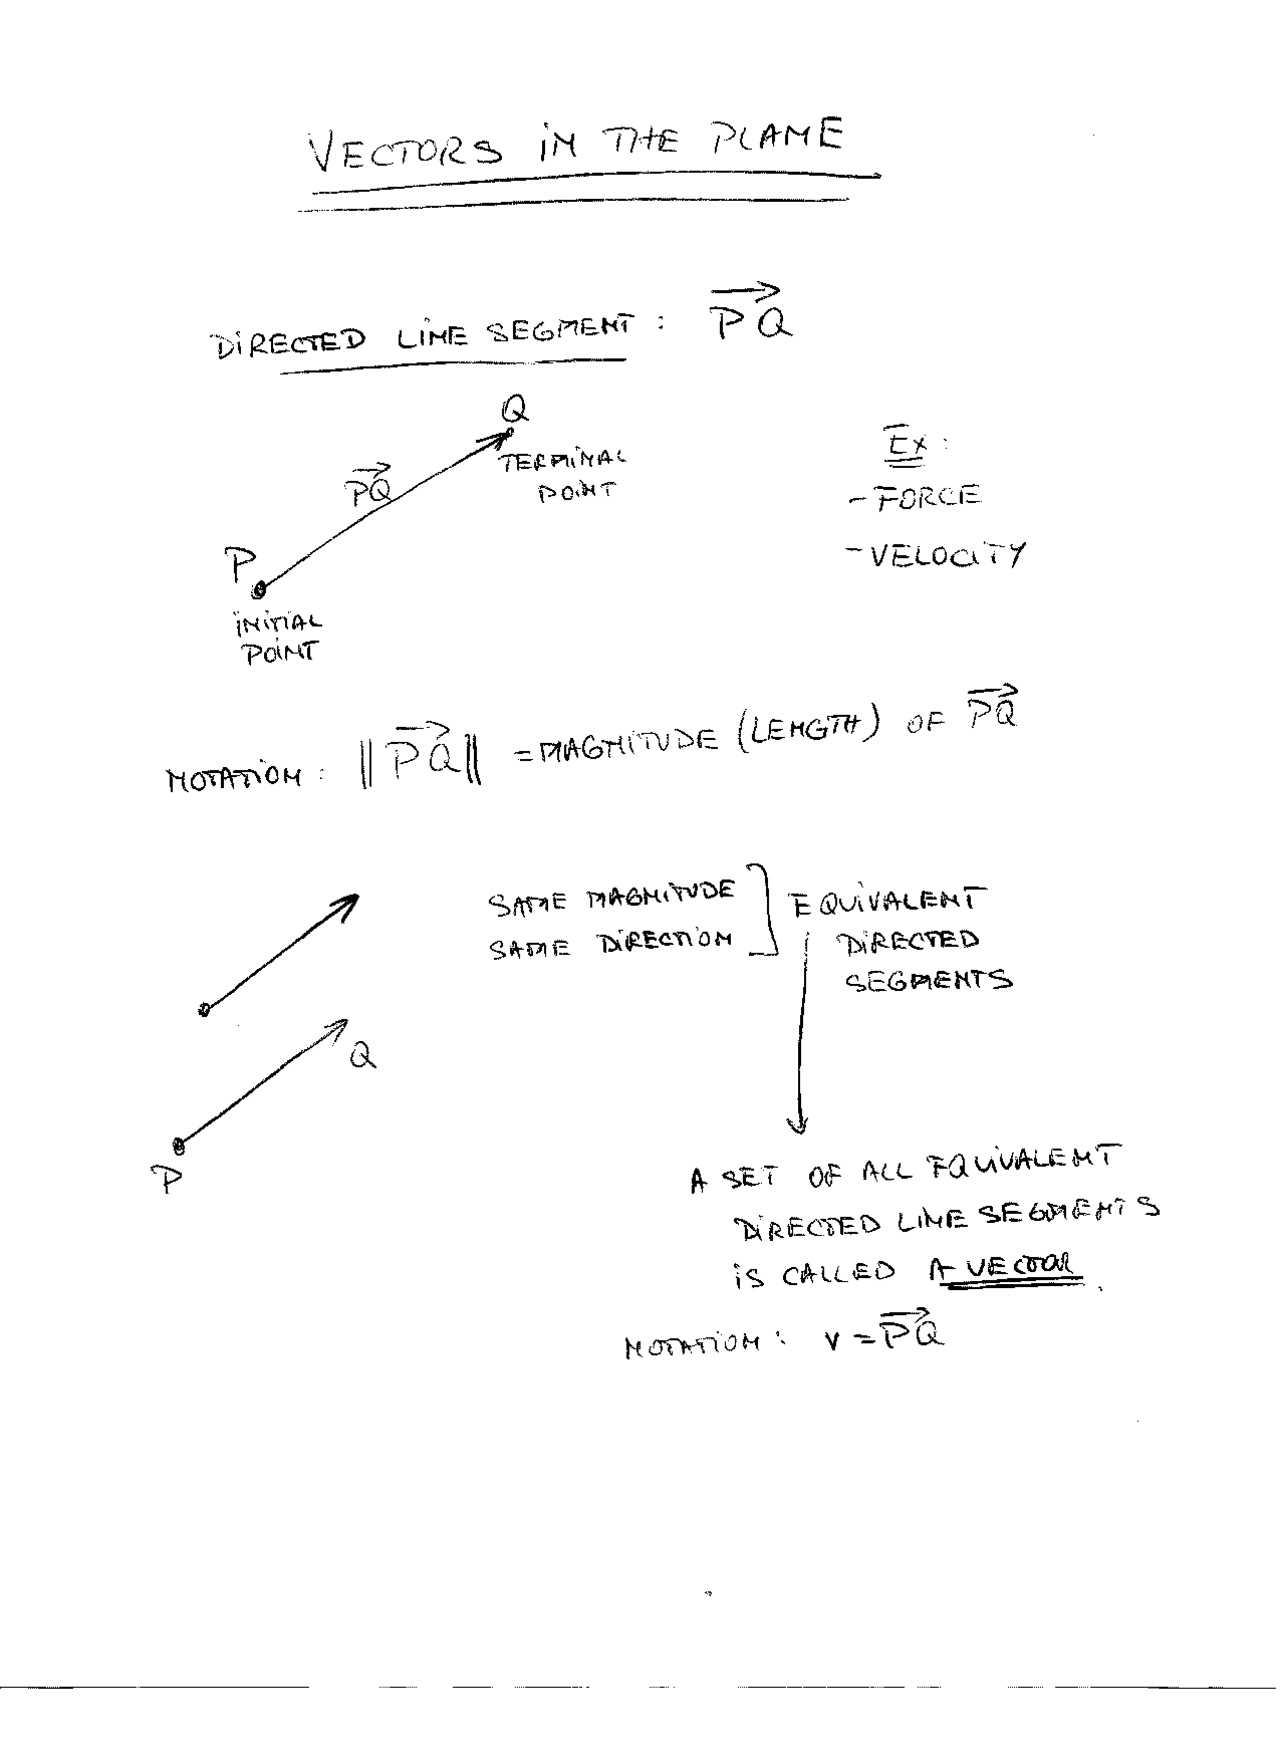 VECTORS IN THE PLANE
DIRECTED LINE SEGMENT: PQ
Q
TERMINAL
POINT
PQ
P
INITIAL
POINT
Ex:
- FORCE
- VELOCITY
NOTATION: ||PQ|| = MAGNITUDE (LENGTH) OF PQ
SAME MAGNITUDE
SAME DIRECTION
EQUIVALENT
DIRECTED
SEGMENTS
Q
P
A SET OF ALL EQUIVALENT
DIRECTED LINE SEGMENTS
IS CALLED A VECTOR.
NOTATION: v = PQ